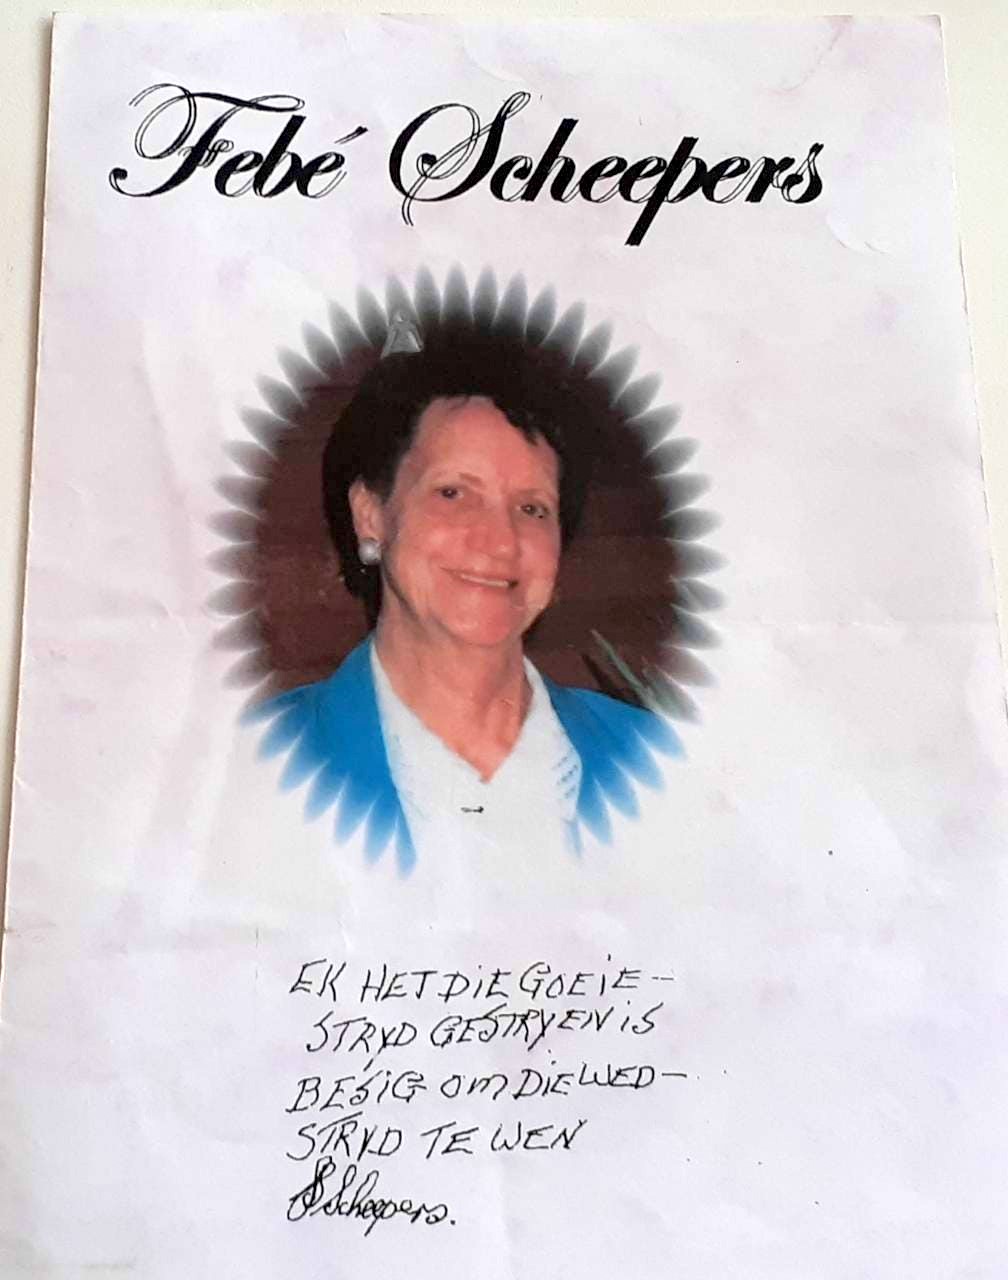 Febé Scheepers
EK HET DIE GOEIE -
STRYD GESTRYEN IS
BESIG OM DIE WED -
STRYD TE WEN
Scheepers.